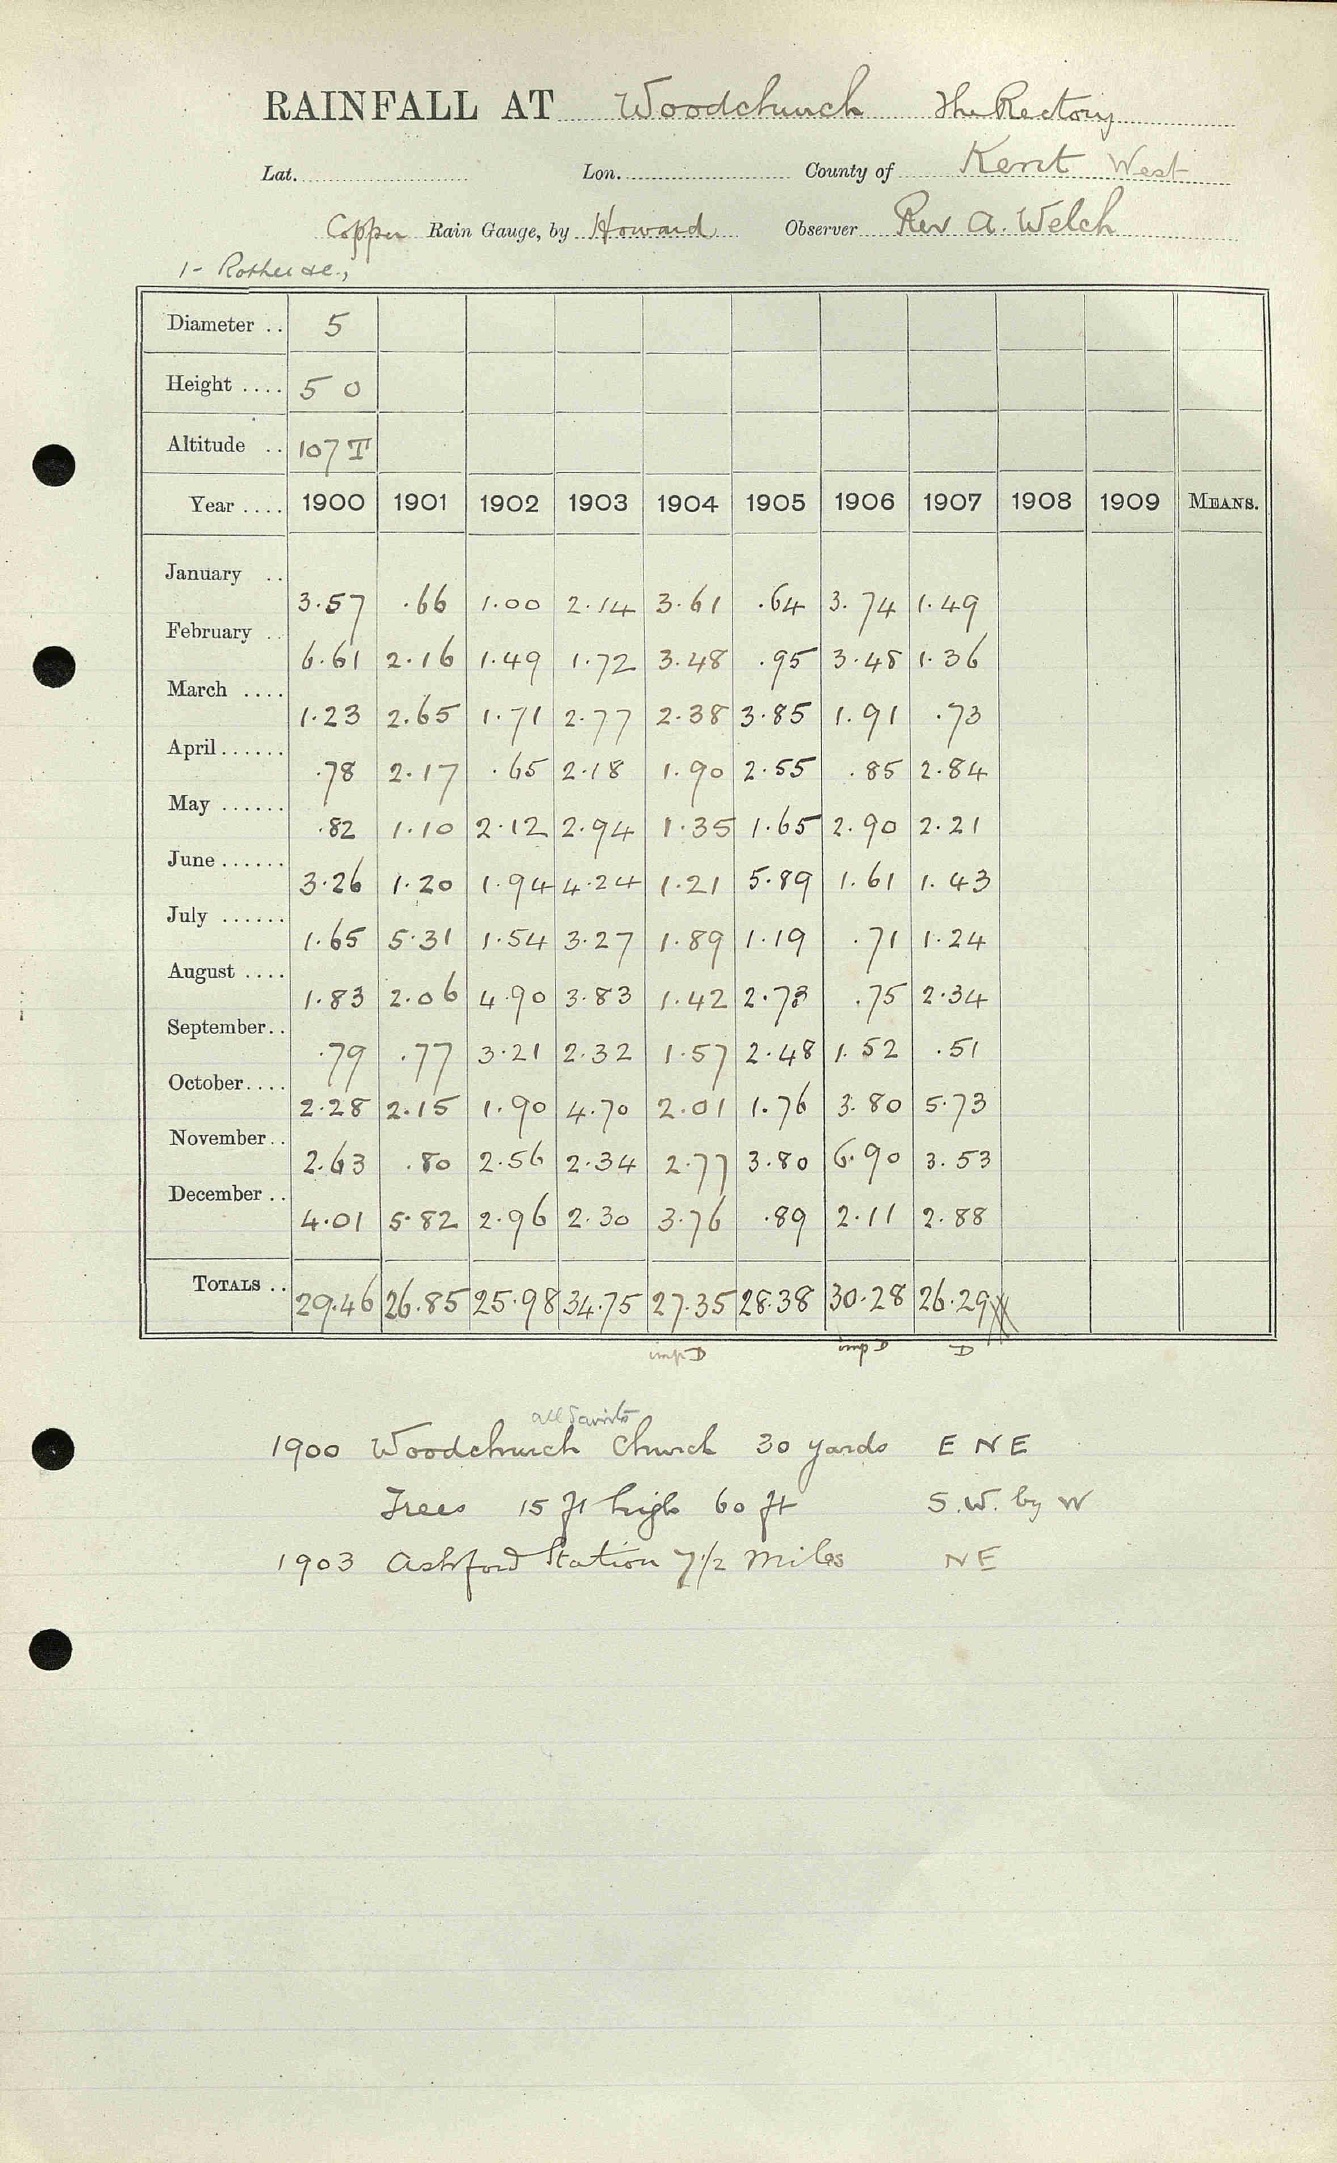 RAINFALL AT Woodchurch The Rectory
Lat. Lon. County of Kent West
Copper Rain Gauge, by Howard Observer Rev A. Welch
1- Rother &c.,
Diameter .. 5
Height .... 5 0
Altitude .. 107 T
Year .... 1900 1901 1902 1903 1904 1905 1906 1907 1908 1909 MEANS.
January .. 3.57 .66 1.00 2.14 3.61 .64 3.74 1.49
February .. 6.61 2.16 1.49 1.72 3.48 .95 3.48 1.36
March .... 1.23 2.65 1.71 2.77 2.38 3.85 1.91 .73
April ...... .78 2.17 .65 2.18 1.90 2.55 .85 2.84
May ...... .82 1.10 2.12 2.94 1.35 1.65 2.90 2.21
June ...... 3.26 1.20 1.94 4.24 1.21 5.89 1.61 1.43
July ...... 1.65 5.31 1.54 3.27 1.89 1.19 .71 1.24
August .... 1.83 2.06 4.90 3.83 1.42 2.73 .75 2.34
September.. .79 .77 3.21 2.32 1.57 2.48 1.52 .51
October.... 2.28 2.15 1.90 4.70 2.01 1.76 3.80 5.73
November.. 2.63 .80 2.56 2.34 2.77 3.80 6.90 3.53
December .. 4.01 5.82 2.96 2.30 3.76 .89 2.11 2.88
TOTALS .. 29.46 26.85 25.98 34.75 27.35 28.38 30.28 26.29
imp D imp D D
all Saints
1900 Woodchurch Church 30 yards E N E
Trees 15 ft high 60 ft S.W. by W
1903 Ashford Station 7 1/2 Miles NE